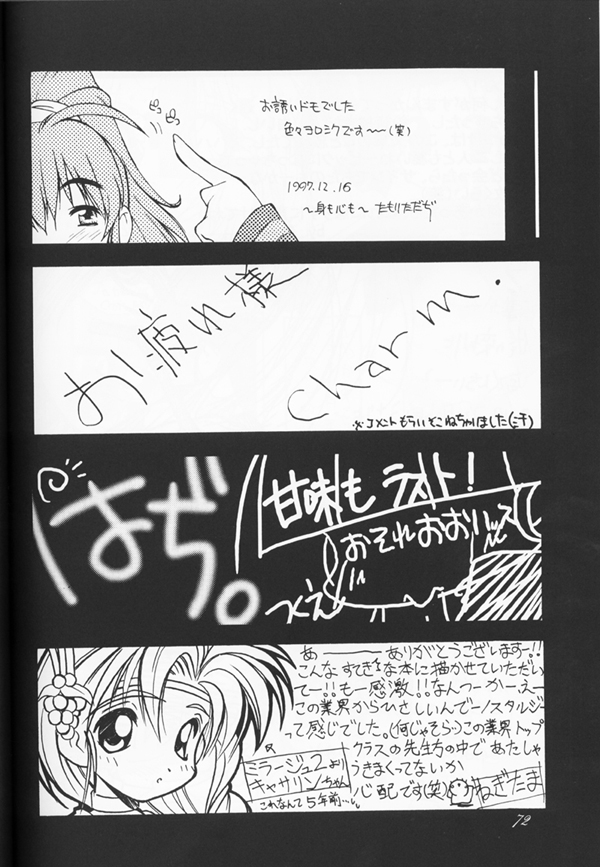 お誘いドモでした
色々ヨロシクです〜(笑)
1997.12.16
〜身も心も〜 たもりただぢ
ピッ
ピッ
お疲れ様
Charm.
※コメントもらいそこねちゃいました(ニ千)
はぢ。
甘味も ラスト!
おそれおおいッス
つくえ
あ———ありがとうございますー!!
こんなすてきな本に描かせていただい
てー!!もー感激!!なんつーかーえー
この業界からひさしいんでーノスタルジ
って感じでした。(何じゃそら)この業界トップ
クラスの先生坊の中であたしゃ
うきまくってないか
心配です(笑)
ねぎたま
ミラージュ2より
キャサリンちゃん
これなんて5年前…
72